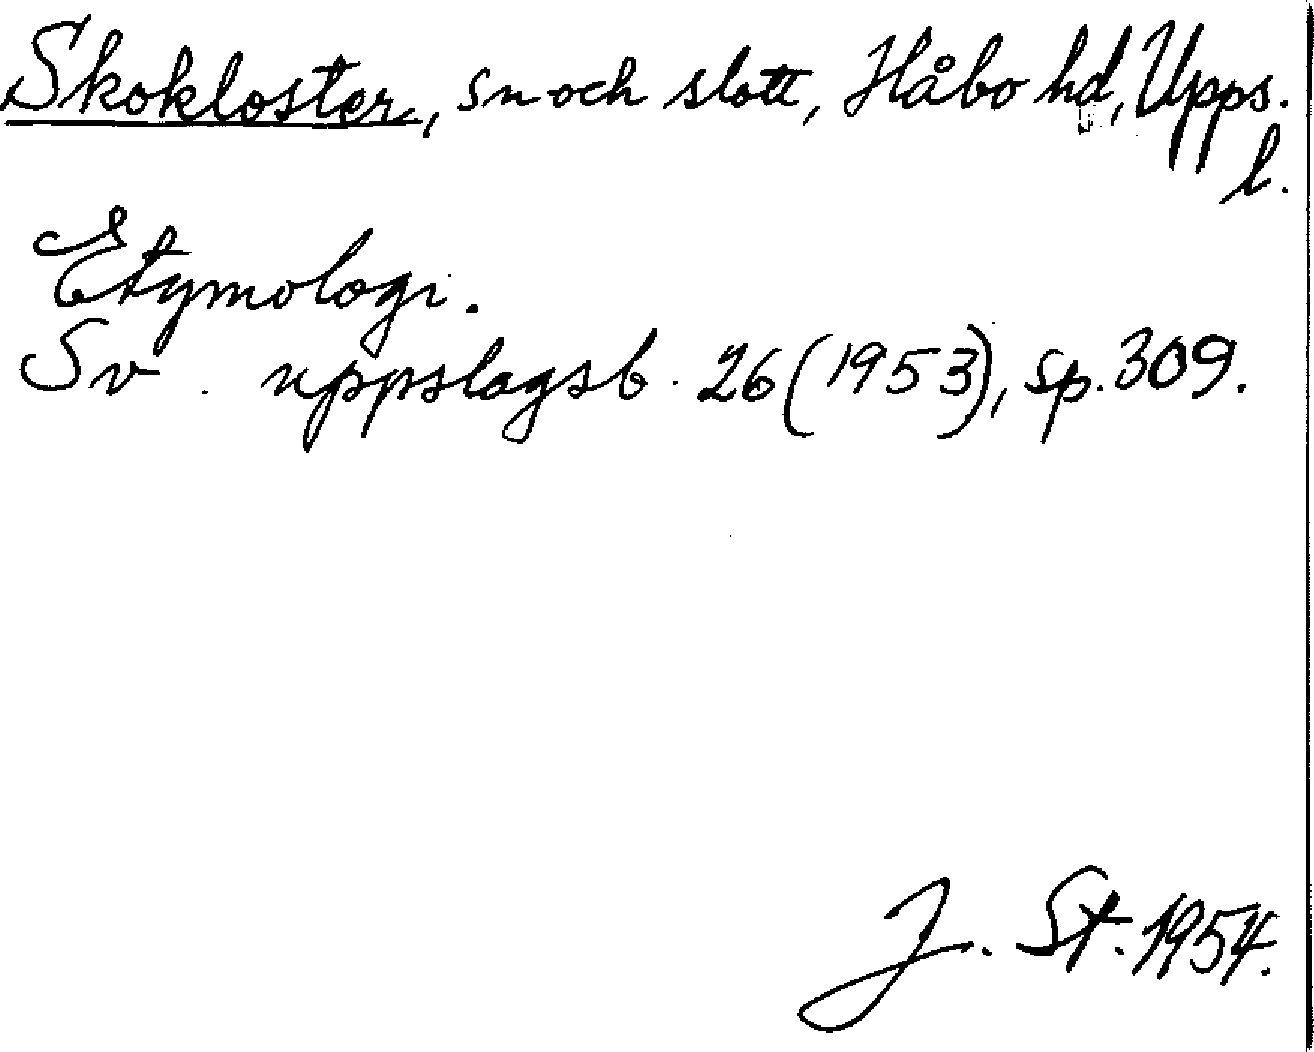 Skokloster, sn och slott, Håbo hd, Upps.
l.
Etymologi.
Sv. uppslagsb. 26 (1953), sp. 309.
J. St. 1954.